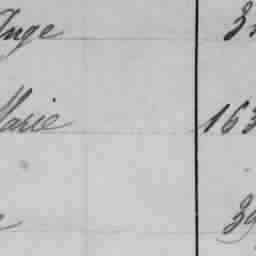 Ange 3
Marie 163
39